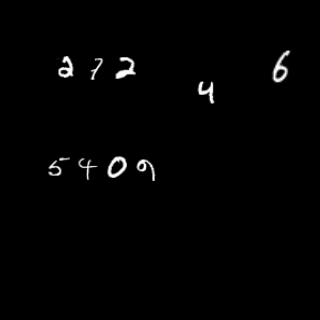 272
4
6
5409